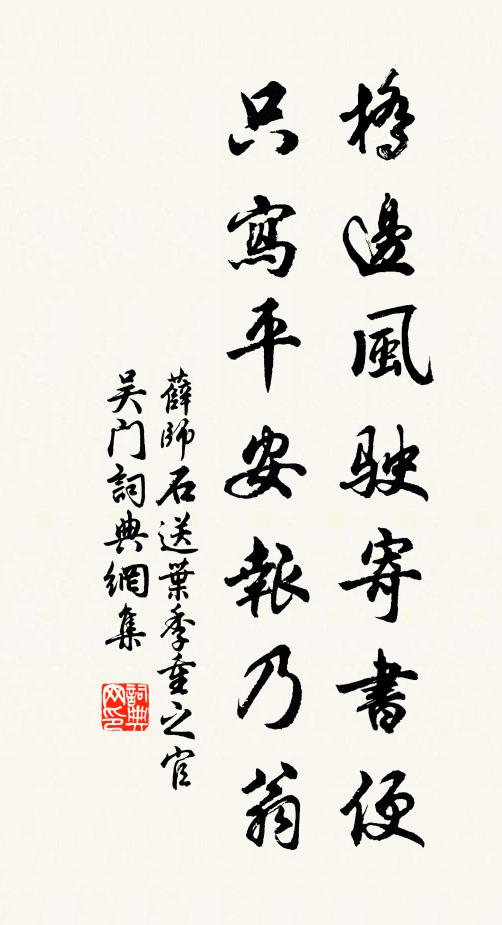 橋邊風駛寄書便
只寫平安報乃翁
薛師石送葉季重之官
吴门詞典網集
詞典网印